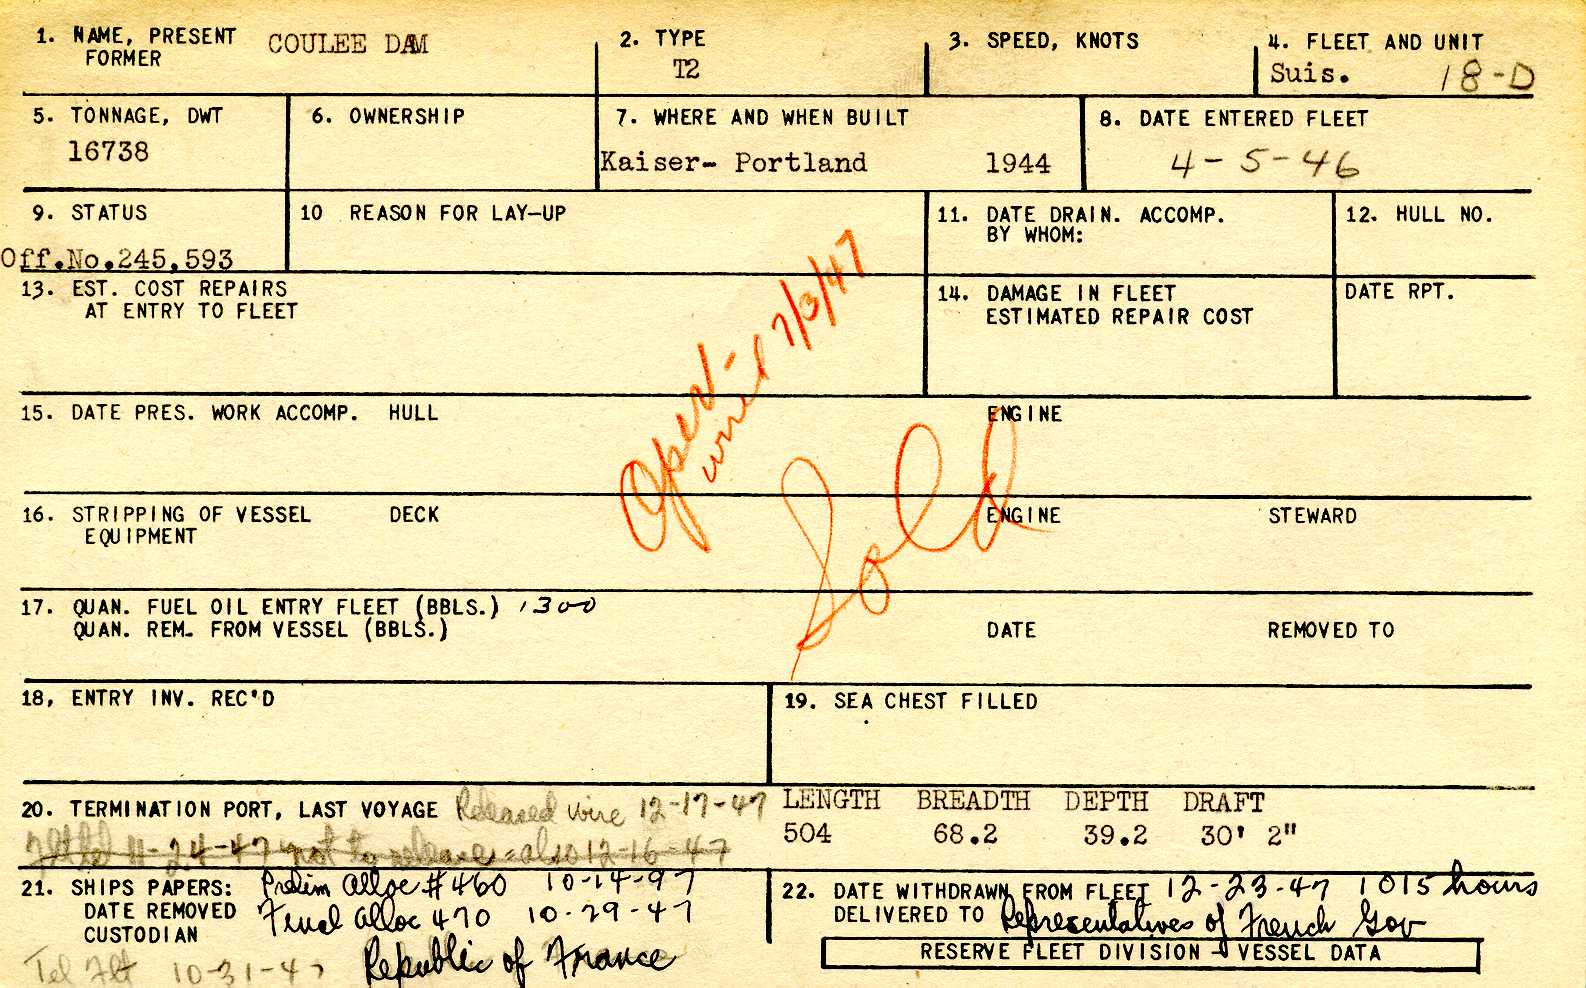 1. NAME, PRESENT COULEE DAM
FORMER
2. TYPE
T2
3. SPEED, KNOTS
4. FLEET AND UNIT
Suis. 18-D
5. TONNAGE, DWT
16738
6. OWNERSHIP
7. WHERE AND WHEN BUILT
Kaiser- Portland 1944
8. DATE ENTERED FLEET
4-5-46
9. STATUS
Off.No.245,593
10 REASON FOR LAY-UP
11. DATE DRAIN. ACCOMP.
BY WHOM:
12. HULL NO.
13. EST. COST REPAIRS
AT ENTRY TO FLEET
14. DAMAGE IN FLEET
ESTIMATED REPAIR COST
DATE RPT.
wire 7/3/47
Sold
15. DATE PRES. WORK ACCOMP. HULL ENGINE
16. STRIPPING OF VESSEL DECK ENGINE STEWARD
EQUIPMENT
17. QUAN. FUEL OIL ENTRY FLEET (BBLS.) 1300
QUAN. REM. FROM VESSEL (BBLS.) DATE REMOVED TO
18, ENTRY INV. REC'D
19. SEA CHEST FILLED
20. TERMINATION PORT, LAST VOYAGE Released wire 12-17-47
11-24-47 not to release - also 12-16-47
LENGTH BREADTH DEPTH DRAFT
504 68.2 39.2 30' 2"
21. SHIPS PAPERS: Prelim alloc #460 10-14-97
DATE REMOVED Final alloc 470 10-29-47
CUSTODIAN
Tel Flt 10-31-47 Republic of France
22. DATE WITHDRAWN FROM FLEET 12-23-47 1015 hours
DELIVERED TO Representatives of French Gov
RESERVE FLEET DIVISION - VESSEL DATA